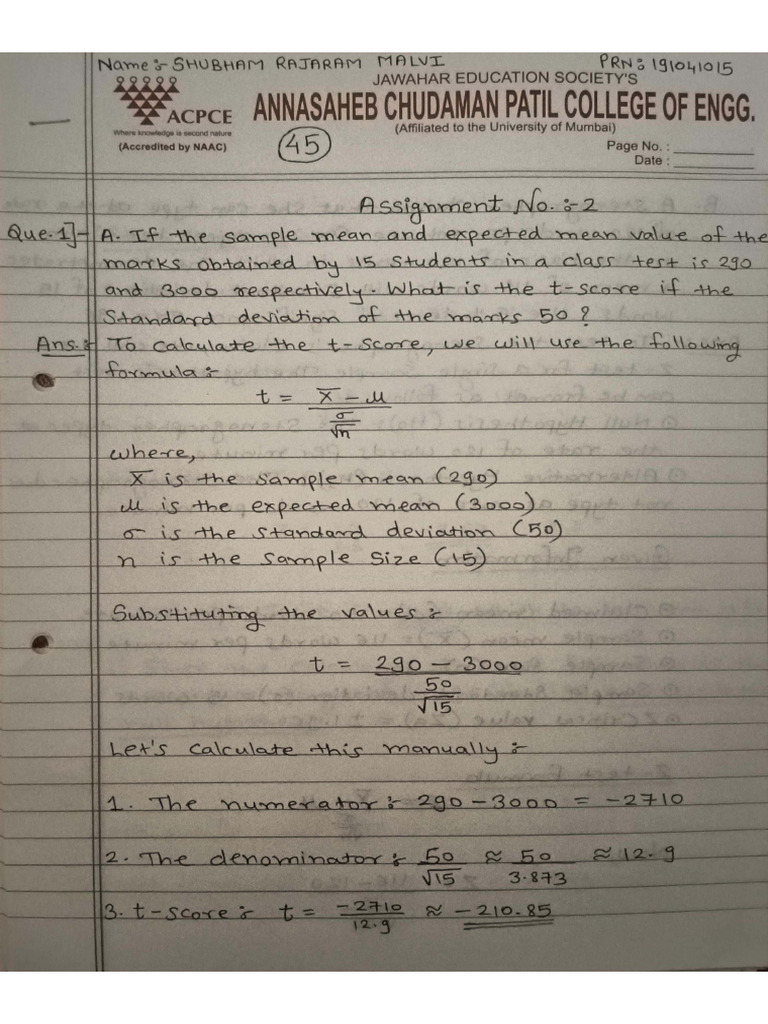 Name:- SHUBHAM RAJARAM MALVI PRN: 191041015
JAWAHAR EDUCATION SOCIETY'S
ACPCE
ANNASAHEB CHUDAMAN PATIL COLLEGE OF ENGG.
Where knowledge is second nature
(Affiliated to the University of Mumbai)
(Accredited by NAAC)
45
Page No. :
Date :
Assignment No. :- 2
Que. 1]- A. If the sample mean and expected mean value of the
marks obtained by 15 students in a class test is 290
and 3000 respectively. What is the t-score if the
Standard deviation of the marks 50?
Ans:- To calculate the t-score, we will use the following
formula:-
t = X̅ - μ / (σ / √n)
where,
X̅ is the sample mean (290)
μ is the expected mean (3000)
σ is the standard deviation (50)
n is the sample size (15)
Substituting the values:-
t = 290 - 3000 / (50 / √15)
Let's calculate this manually:-
1. The numerator:- 290 - 3000 = -2710
2. The denominator:- 50/√15 ≈ 50/3.873 ≈ 12.9
3. t-score:- t = -2710/12.9 ≈ -210.85